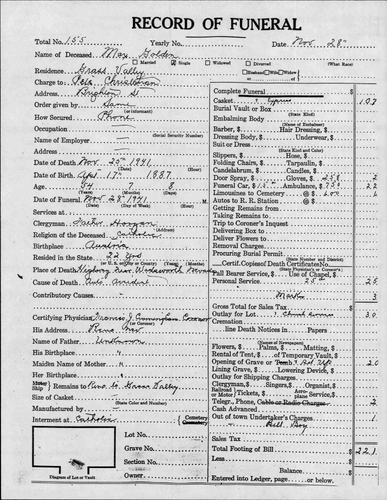 RECORD OF FUNERAL
Total No. 155 Yearly No. Date Nov 28"
Name of Deceased Max Golden
Married Single Widowed Divorced (What Race)
Residence Grass Valley Husband Wife Widow or
Charge to Pete Christman
Address Brighton St.
Order given by Same
How Secured Phone
Occupation
(Social Security Number)
Name of Employer
Address
Date of Death Nov. 25th 1941
Date of Birth Apr. 17th 1887
Age 54 7 8
(Years) (Months) (Days)
Date of Funeral Nov 28th 1941
(Day of Week) (Hour)
Services at
Clergyman Father Horgan
Religion of the Deceased Catholic
Birthplace Austria
Resided in the State 22 Yrs
(or U. S., City or County) (Years) (Months) (Days)
Place of Death Highway Near Wadsworth Nevada
Cause of Death Auto Accident
Contributory Causes
Certifying Physician Coroner
(or Coroner)
His Address Reno Nev
Name of Father Unknown
His Birthplace "
Maiden Name of Mother "
Her Birthplace "
Motor Ship Remains to Reno to Grass Valley
Size of Casket
(State Color and Number)
Manufactured by
Interment at Catholic Cemetery Crematory
Lot No.
Grave No.
Section No.
Owner
Diagram of Lot or Vault
Complete Funeral $
Casket $ 107
Burial Vault or Box $
(State Kind)
Embalming Body $
(Name of Embalmer)
Barber, $ Hair Dressing, $
Dressing Body, $ Underwear, $
Suit or Dress $
(State Kind and Color)
Slippers, $ Hose, $
Folding Chairs, $ Tarpaulin, $
Candelabrum, $ Candles, $
Door Spray, $ Gloves, $ 2
Funeral Car, $15 Ambulance, $ 22
Limousines to Cemetery @ $ 6
Autos to R. R. Station @ $
Getting Remains from $
Taking Remains to $
Trip to Coroner's Inquest $
Delivering Box to $
Deliver Flowers to $
Removal Charges $
Procuring Burial Permit $
(State Number and District)
Certif. Copies of Death Certificates No. $
(State Physician's or Coroner's)
Pall Bearer Service, $ Use of Chapel, $
Personal Service $ 25
3
Gross Total for Sales Tax $
Outlay for Lot $ 30
Cremation $
line Death Notices in Papers
(Names of Newspapers)
Flowers, $ Palms, $ Matting, $
Rental of Tent, $ of Temporary Vault, $
Opening of Grave or Tomb $ 20
Lining Grave, $ Lowering Device, $
Outlay for Shipping Charges $
Clergyman, $ Singers, $ Organist, $
Railroad or Motor Tickets, $ Aeroplane Service, $
Telegr., Phone, Cable or Radio Charges $ 2
Cash Advanced $
Out of town Undertaker's Charge $ 1
Bell Boy
Sales Tax $
Total Footing of Bill $ 221
Less $
Balance $
Entered into Ledger, page or below.